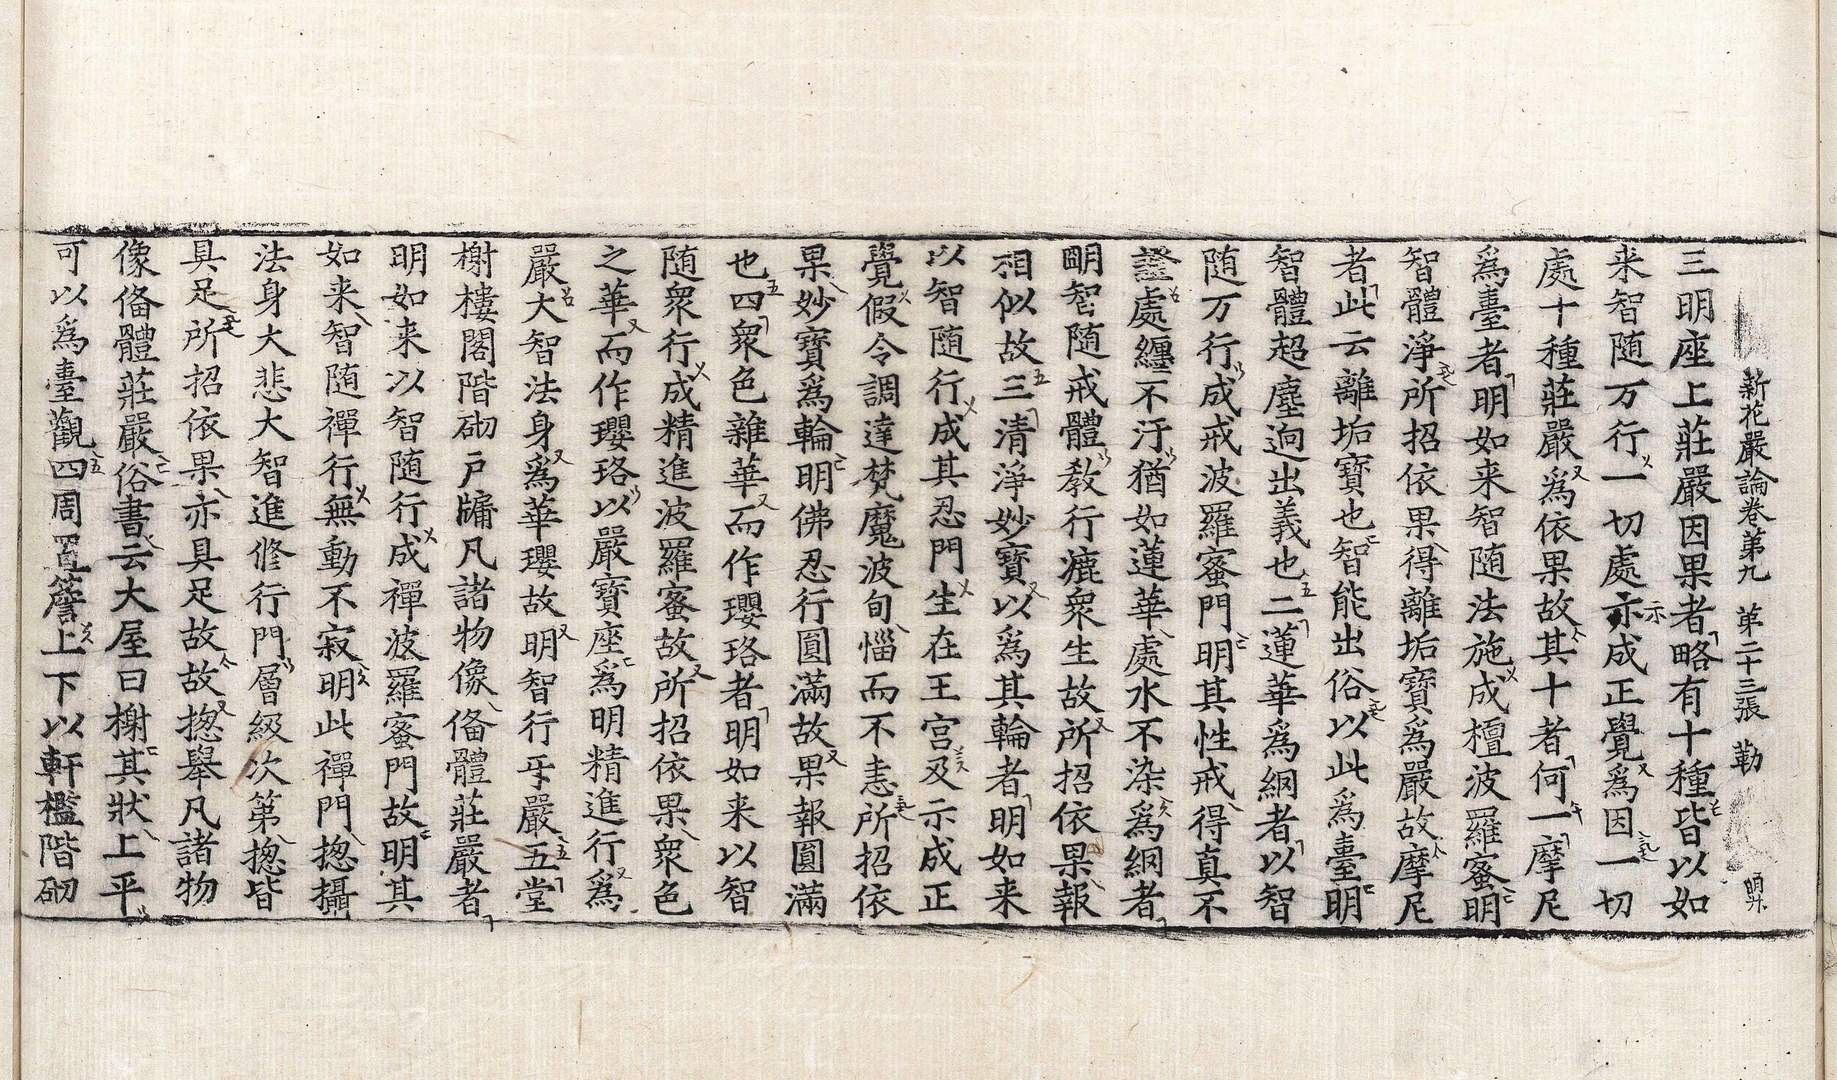 新花嚴論卷第九　第二十三張　勒
三明座上莊嚴因果者略有十種皆以如
来智随万行一切處亦成正覺爲因一切
處十種莊嚴爲依果故其十者何一摩尼
爲臺者明如来智随法施成檀波羅蜜明
智體淨所招依果得離垢寶爲嚴故摩尼
者此云離垢寶也智能出俗以此爲臺明
智體超塵逈出義也二蓮華爲網者以智
随万行成戒波羅蜜門明其性戒得真不
證處纏不汙猶如蓮華處水不染爲網者
明智随戒體教行漉衆生故所招依果報
相似故三清淨妙寶以爲其輪者明如来
以智随行成其忍門生在王宮及示成正
覺假令調達梵魔波旬惱而不恚所招依
果妙寶爲輪明佛忍行圓滿故果報圓滿
也四衆色雜華而作瓔珞者明如来以智
随衆行成精進波羅蜜故所招依果衆色
之華而作瓔珞以嚴寶座爲明精進行爲
嚴大智法身爲華瓔故明智行㸦嚴五堂
榭樓閣階砌戶牖凡諸物像俻體莊嚴者
明如来以智随行成禪波羅蜜門故明其
如来智随禪行無動不寂明此禪門揔攝
法身大悲大智進修行門層級次第揔皆
具足所招依果亦具足故故揔舉凡諸物
像俻體莊嚴俗書云大屋曰榭其狀上平
可以爲臺觀四周置簷上下以軒檻階砌